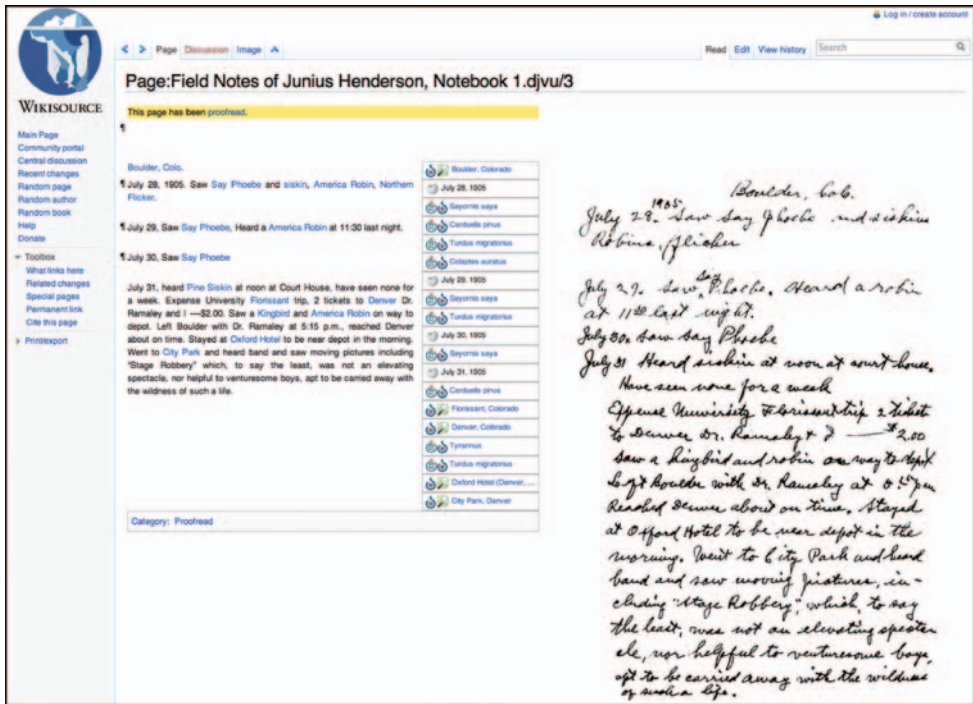 Log in / create account
Page Discussion Image
Read Edit View history Search
Page:Field Notes of Junius Henderson, Notebook 1.djvu/3
WIKISOURCE
This page has been proofread.
¶
Main Page
Community portal
Central discussion
Recent changes
Random page
Random author
Random book
Help
Donate
Toolbox
What links here
Related changes
Special pages
Permanent link
Cite this page
Print/export
Boulder, Colo.
¶ July 28, 1905. Saw Say Phoebe and siskin, America Robin, Northern
Flicker.
¶ July 29, Saw Say Phoebe, Heard a America Robin at 11:30 last night.
¶ July 30, Saw Say Phoebe
July 31, heard Pine Siskin at noon at Court House, have seen none for
a week. Expense University Florissant trip, 2 tickets to Denver Dr.
Ramaley and I —-$2.00. Saw a Kingbird and America Robin on way to
depot. Left Boulder with Dr. Ramaley at 5:15 p.m., reached Denver
about on time. Stayed at Oxford Hotel to be near depot in the morning.
Went to City Park and heard band and saw moving pictures including
"Stage Robbery" which, to say the least, was not an elevating
spectacle, nor helpful to venturesome boys, apt to be carried away with
the wildness of such a life.
Boulder, Colorado
July 28, 1905
Sayornis saya
Carduelis pinus
Turdus migratorius
Colaptes auratus
July 29, 1905
Sayornis saya
Turdus migratorius
July 30, 1905
Sayornis saya
July 31, 1905
Carduelis pinus
Florissant, Colorado
Denver, Colorado
Tyrannus
Turdus migratorius
Oxford Hotel (Denver, ...
City Park, Denver
Category: Proofread
Boulder, Colo.
1905
July 28. Saw Say Phoebe and siskins
Robins, flicker
July 29. Saw Say Phoebe. Heard a robin
at 11 30 last night.
July 30. Saw Say Phoebe
July 31 Heard siskin at noon at court house.
Have seen none for a week
Expense University Florissant trip 2 ticket
to Denver Dr. Ramaley + I — $2.00
Saw a kingbird and robin on way to depot
Left Boulder with Dr. Ramaley at 5 15 pm
Reached Denver about on time. Stayed
at Oxford Hotel to be near depot in the
morning. Went to City Park and heard
band and saw moving pictures, in-
cluding "Stage Robbery", which, to say
the least, was not an elevating specta-
cle, nor helpful to venturesome boys,
apt to be carried away with the wildness
of such a life.